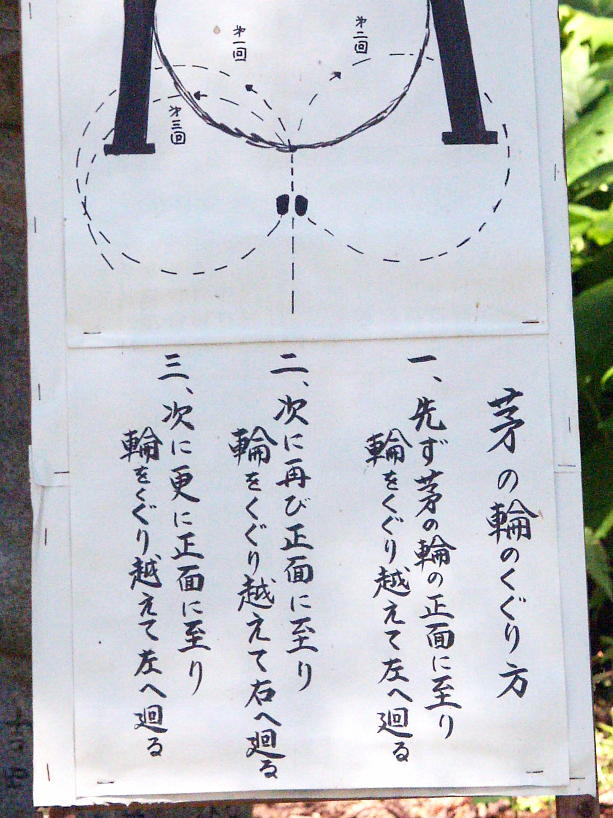 第一回
第二回
第三回
茅の輪のくぐり方
一、先ず茅の輪の正面に至り
輪をくぐり越えて左へ廻る
二、次に再び正面に至り
輪をくぐり越えて右へ廻る
三、次に更に正面に至り
輪をくぐり越えて左へ廻る